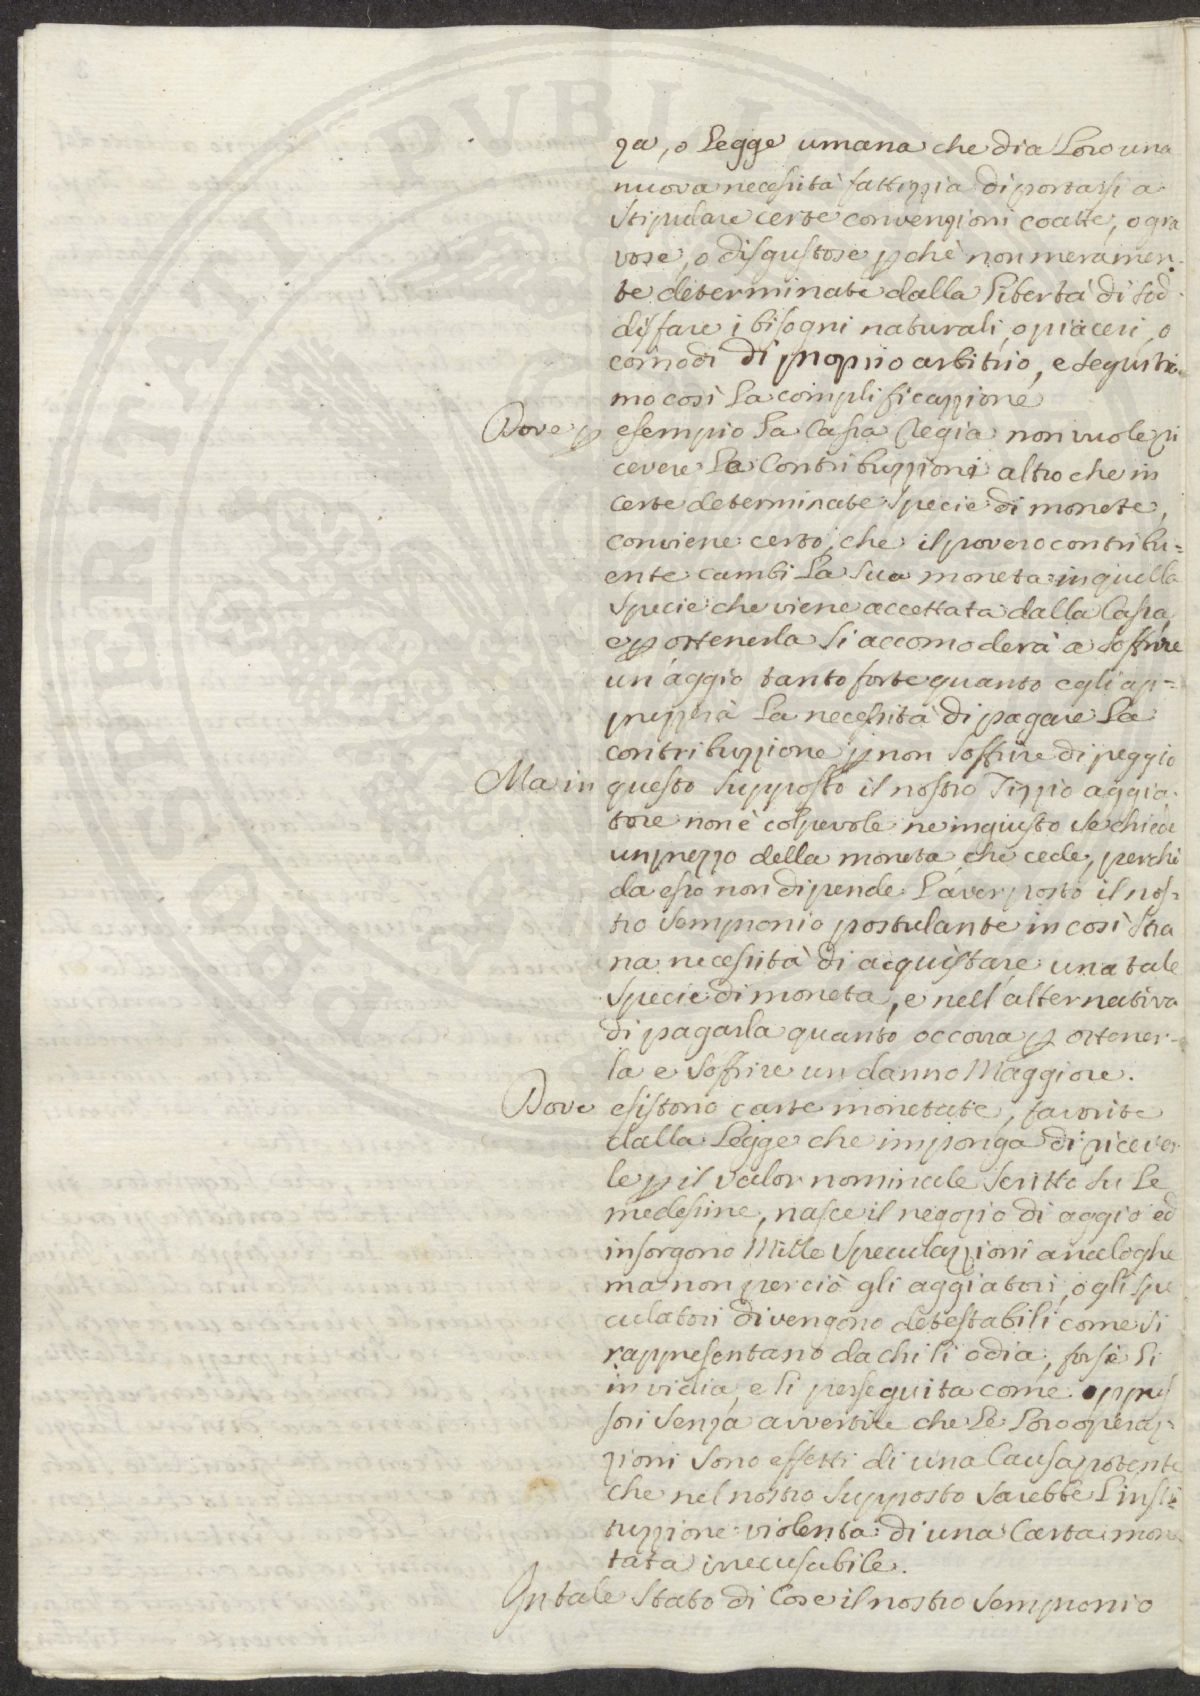 za, o Legge umana che dia Loro una
nuova necessità fattizzia di portarsi a
stipulare certe convenzioni coatte, o gra
vose, o disgustose p chè non meramen-
te determinate dalla Libertà di sod-
disfare i bisogni naturali, o piaceri, o
comodi di proprio arbitrio, e seguitia-
mo così La complificazzione
Dove p esempio La Cassa Regia non vuole ri
cevere Le Contribuzzioni altro che in
certe determinate specie di monete,
conviene certo, che il povero contribu=
ente cambi La sua moneta in quella
specie che viene accettata dalla Cassa,
e p ottenerla si accomoderà a soffrire
un'aggio tanto forte quanto egli ap=
prezzerà La necessità di pagare La
contribuzzione p non soffrire di peggio
Ma in questo supposto il nostro Tizzio aggia-
tore non è colpevole ne ingiusto se chiede
un prezzo della moneta che cede, perchè
da esso non dipende L'aver posto il nos-
tro Sempronio postulante in così stra
na necessità di acquistare una tale
specie di moneta, e nell'alternativa
di pagarla quanto occorra p ottener-
la e soffrire un danno Maggiore.
Dove esistono carte monetate, favorite
dalla Legge che imponga di ricever
le p il valor nominale scritto su Le
medesime, nasce il negozio di aggio ed
insorgono Mille speculazzioni analoghe
ma non perciò gli aggiatori, o gli spe
culatori divengono detestabili come si
rappresentano da chi li odia, forse li
invidia, e li perseguita come oppres
sori senza avvertire che Le Loro operaz-
zioni sono effetti di una Causa potente
che nel nostro supposto sarebbe L'insti
tuzzione violenta di una Carta mone
tata irrecusabile.
In tale stato di Cose il nostro Sempronio
PVBLI
STERINATI